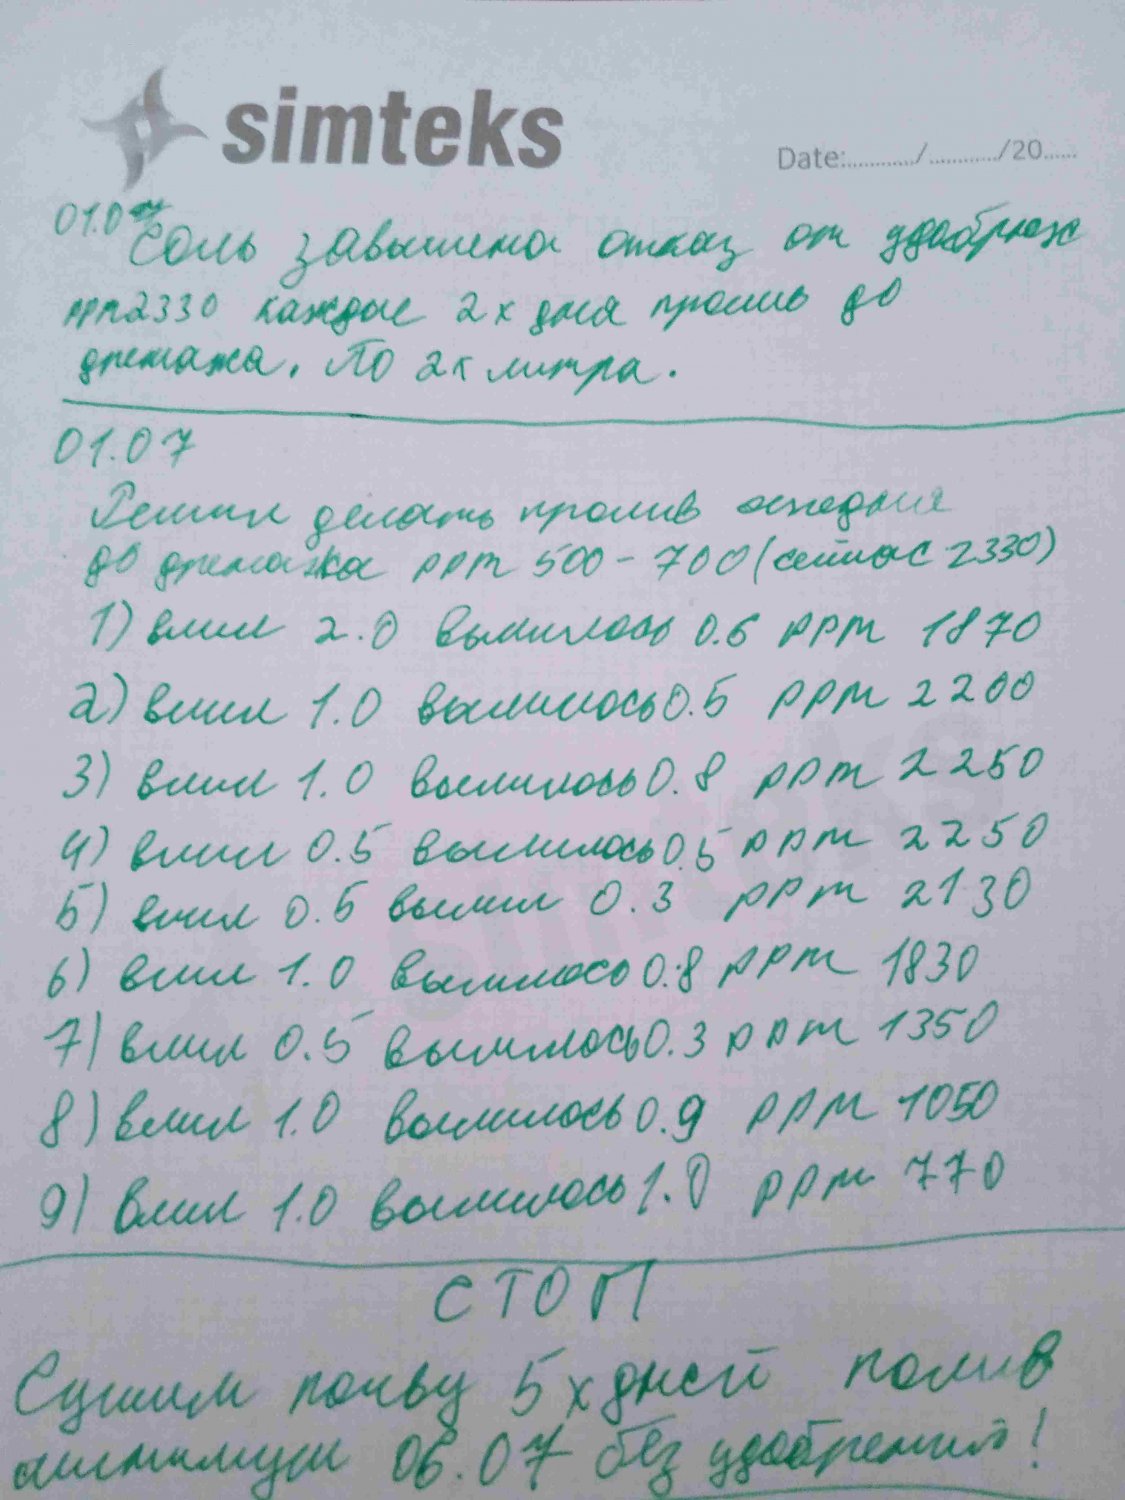 simteks
Date:............/............/20......
01.07
Соль завышена отказ от удобрюх
ppm2330 каждые 2х дня пролив до
дренажа. По 2х литра.
01.07
Решил делать пролив
до дренажа ppm 500-700 (сейчас 2330)
1) влил 2.0 вылилось 0.6 ppm 1870
2) влил 1.0 вылилось 0.5 ppm 2200
3) влил 1.0 вылилось 0.8 ppm 2250
4) влил 0.5 вылилось 0.5 ppm 2250
5) влил 0.5 вылил 0.3 ppm 2130
6) влил 1.0 вылилось 0.8 ppm 1830
7) влил 0.5 вылилось 0.3 ppm 1350
8) влил 1.0 вылилось 0.9 ppm 1050
9) Влил 1.0 вылилось 1.0 ppm 770
СТОП
Сушим почву 5х дней полив
06.07 без удобрений!